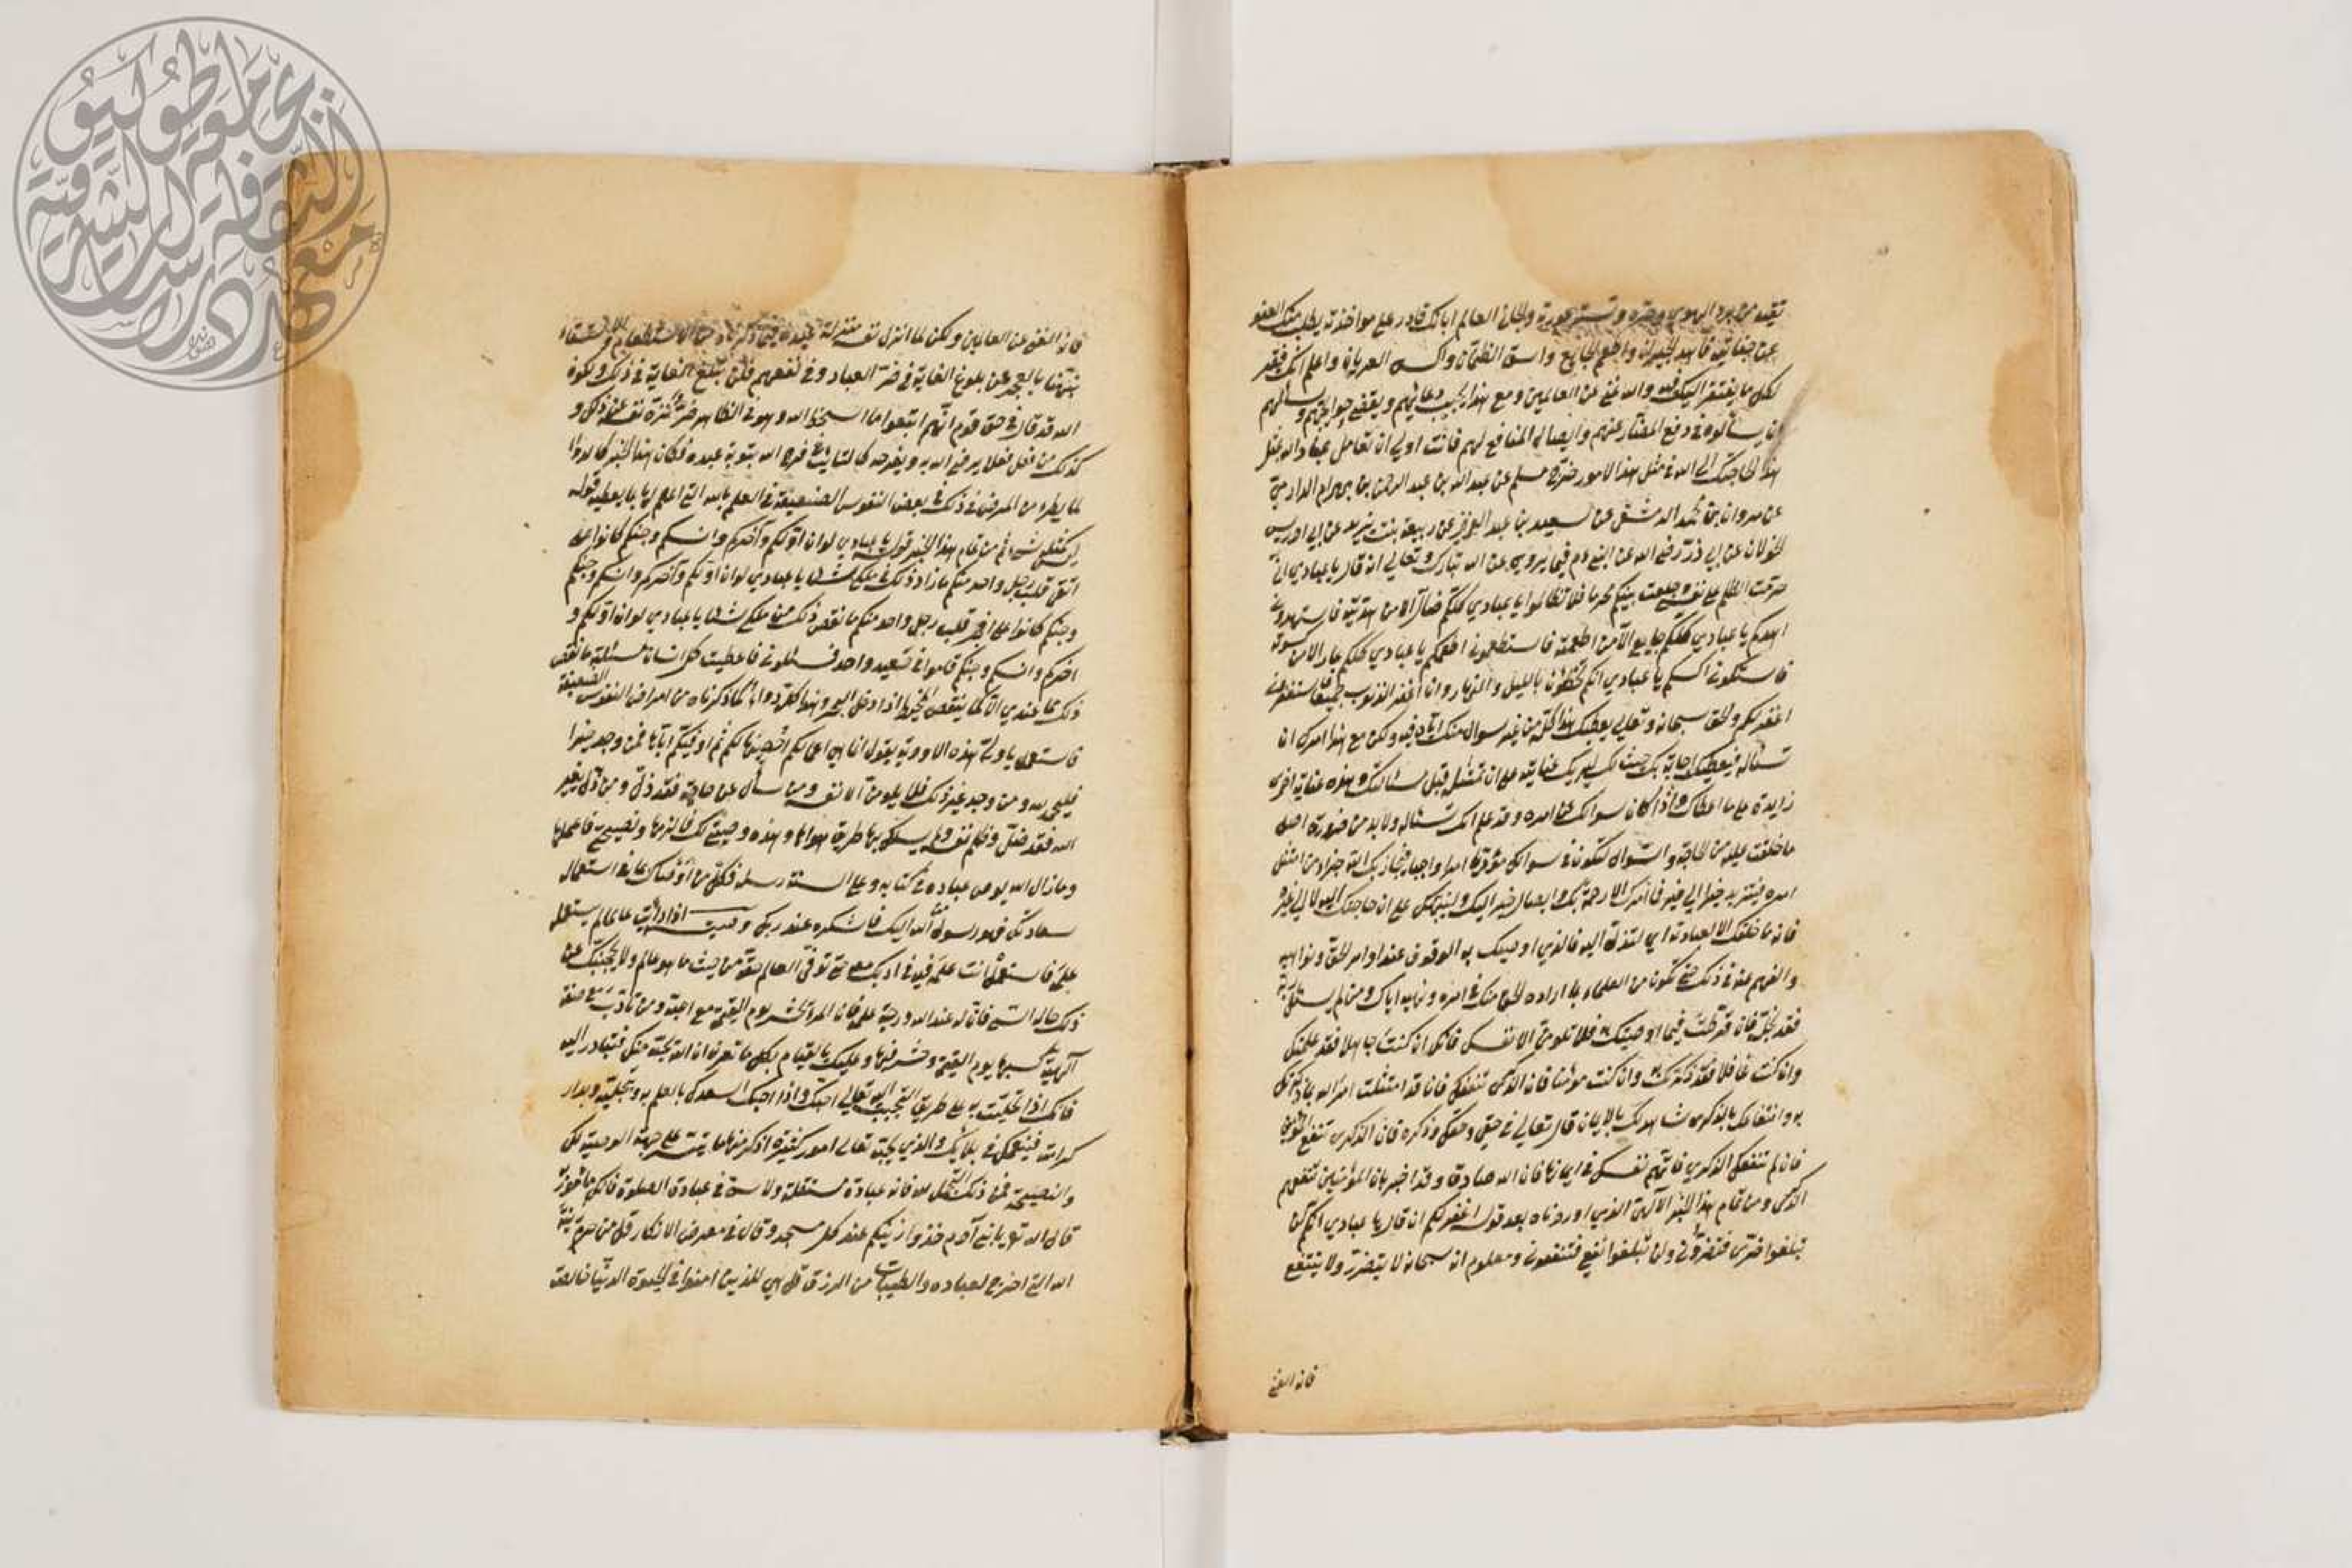 تقيه من برد الهوى وحره وتستر عورته والجاني العالم انك قادر على مواخذته يطلب منك العفو
عن جنايته فاهد الحيران واطعم الجايع واسق الظمآن واكس العريان واعلم انك فقير
لكل ما يفتقر اليك فيه والله غني عن العالمين ومع هذا يجيب دعائهم ويقضي حوايجهم ويسألهم
ان يسألوه في دفع المضار عنهم وايصال المنافع لهم فانت اولى ان تعامل عباد الله بمثل
هذا لحاجتك الى الله في مثل هذا الامور خرج مسلم عن عبد الله بن عبد الرحمن بن بهرام الدارمي
عن مروان بن محمد الدمشقي عن سعيد بن عبد العزيز عن ربيعة بنت يزيد عن ابي ادريس
الخولاني عن ابي ذر رضي الله عن النبي عم فيما يروي عن الله تبارك وتعالى انه قال يا عبادي اني
حرمت الظلم على نفسي وجعلت بينكم محرما فلا تظالموا يا عبادي كلكم ضال الا من هديته فاستهدوني
اهدكم يا عبادي كلكم جايع الا من اطعمته فاستطعموني اطعمكم يا عبادي كلكم عار الا من كسوته
فاستكسوني اكسكم يا عبادي انكم تخطئون بالليل والنهار وانا اغفر الذنوب جميعا فاستغفروني
اغفر لكم والحق سبحانه وتعالى يعطيك هذا كله من غير سوال منك اياه فيه ولكن مع هذا امرك ان
تسأله فيعطيك اجابة بك حيث لك ليريك عنايته على ان تمثل قبل سئالتك وهذه عناية اخرى
زايدة على ما اعطاك واذا كان سوالك عن امره وقد علم انك تسأله ولا بد من ضرورة اصل
ما خلقت عليه من الحاجة والسؤال لتكون في سوالك مؤديا امرا واجبا فجازيك الله جزاء من امتثل
امره فيزيد خيرا الى خير فما امرك الا رحمة بك وايصال خير اليك ولينبهك على ان حاجتك اليه لا الى غيره
فانه ما خلقك الا لعبادته اي لتذلّ اليه فالذي اوصيك به الوقوف عند اوامر الحق ونواهيه
والفهم عنه في ذلك حتى تكون من العلماء بما اراده الحق منك في امره ونهيه اياك ومن لم يسئل ربه
فقد بخل فان فرطت فيما اوصيتك به فلا تلومن الا نفسك فانك ان كنت جاهلا فقد علمتك
وان كنت غافلا فقد ذكرتك وان كنت مؤمنا فان الذكرى تنفعك فان قد امتثلت امر الله بما ذكرتك
به وانتفاعك بالذكرى شاهد لك بالايمان قال تعالى في حقي وحقك وذكره فان الذكرى تنفع المؤمنين
فان لم تنفعك الذكرى فاتهم نفسك في ايمانها فان الله صادق وقد اخبر بان المؤمنين تنفعهم
الذكرى ومن تمام هذا الخبر الالهي الذي اوردناه بعد قوله اغفر لكم ان قال يا عبادي انكم لن
تبلغوا ضري فتضروني ولن تبلغوا نفعي فتنفعوني ومعلوم انه سبحانه لا يتضرر ولا ينتفع
فانه الغني
فانه الغني عن العالمين ولكن لما انزل نفسه منزلة عبده فيما ذكرناه من الاستطعام والاستسقاء
نبهنا بالعجز عن بلوغ الغاية في ضر العباد وفي نفعهم فلن تبلغ الغاية في ذلك ويكون
الله قد قال في حق قوم انهم اتبعوا ما اسخط الله وهو في الظاهر ضر ونزه نفسه عن ذلك و
كذلك من فعل فعلا يرضي الله به ويفرحه كالتايب في فرح الله بتوبة عبده فكان هذا الخبر كالدوا
لما يطرو من المرض في ذلك في بعض النفوس الضعيفة في العلم بالله التي لا علم لها بما يعطيه قوله
ليس كمثله شيء ثم من تمام هذا الخبر قوله يا عبادي لو ان اولكم وآخركم وانسكم وجنكم كانوا على
اتقى قلب رجل واحد منكم ما زاد ذلك في ملكي شيئا يا عبادي لو ان اولكم وآخركم وانسكم وجنكم
وجنكم كانوا على افجر قلب رجل واحد منكم ما نقص ذلك من ملكي شيئا يا عبادي لو ان اولكم و
اخركم وانسكم وجنكم قاموا في صعيد واحد فسئلوني فاعطيت كل انسان مسئلته ما نقص
ذلك مما عندي الا كما ينقص المخيط اذا دخل البحر وهذا كله دواء لما ذكرناه من امراض النفوس الضعيفة
فاستعمل يا ولي هذه الادوية يقول انما هي اعمالكم احصيها لكم ثم اوفيكم اياها فمن وجد خيرا
فليحمد الله ومن وجد غير ذلك فلا يلومن الا نفسه ومن سأل عن حاجة فقد ذل ومن ذل لغير
الله فقد ضل وظلم نفسه ولم يسلك بها طريق هداها وهذه وصيتي لك فالزمها ونصيحتي فاعملها
وما زال الله يوصي عباده في كتابه وعلى السنة رسله فكل من اوصاك بما في استعماله
سعادتك فهو رسول من الله اليك فاشكره عند ربك وصية اذا رأيت عالما لم يستعمله
علمه فاستعمل انت علمه فيه في ادبك معه حتى توفي العالم حقه من حيث ما هو عالم ولا يحجبنك عن
ذلك حاله السيئ فان له عند الله درجة علمه فان المرء يحشر يوم القيمة مع من احبه ومن تأدب مع صفة
الهية كسيها يوم القيمة وحشر فيها وعليك بالقيام بكل ما تعرف ان الله يحبه منك فتبادر اليه
فانك اذا تحليت به على طريق التحبب اليه تعالى احبك واذا احبك اسعدك بالعلم به وبتجليه وبدار
كرامته فينعمك في بلائك والذي يحبه تعالى امور كثيرة اذكر منها ما تيسر على جهة الوصية لك
والنصيحة فمن ذلك التجمل لله فانه عبادة مستقلة ولا سيما في عبادة الصلوة فانك مأمور به
قال الله تع يا بني آدم خذوا زينتكم عند كل مسجد وقال في معرض الانكار قل من حرم زينة
الله التي اخرج لعباده والطيبات من الرزق قل هي للذين امنوا في الحيوة الدنيا خالصة